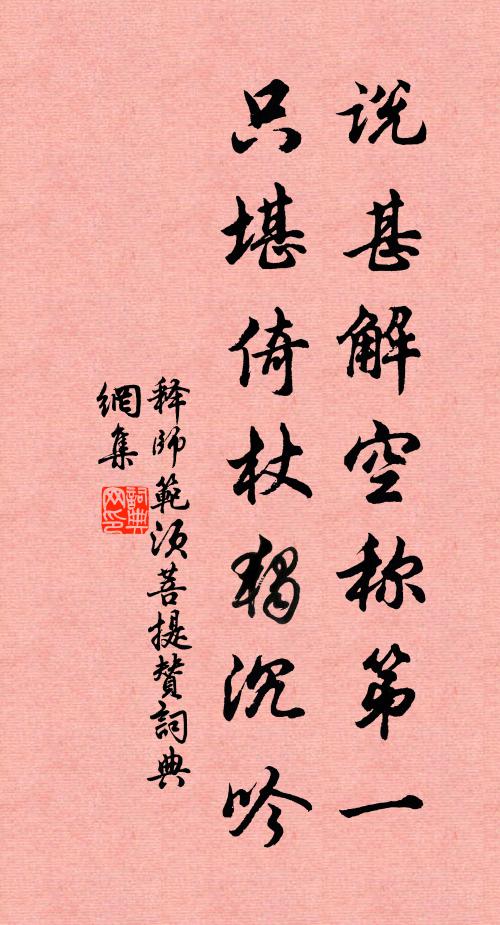 说甚解空称第一
只堪倚杖独沉吟
释师範须菩提赞詞典
網集
詞典网印